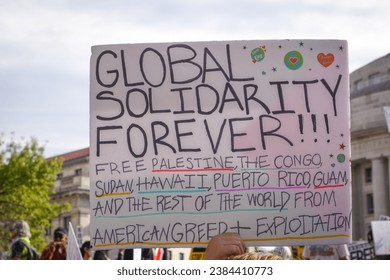 GLOBAL
SOLIDARITY
FOREVER!!!
FREE PALESTINE, THE CONGO,
SUDAN, HAWAII, PUERTO RICO, GUAM,
AND THE REST OF THE WORLD FROM
AMERICAN GREED + EXPLOITATION